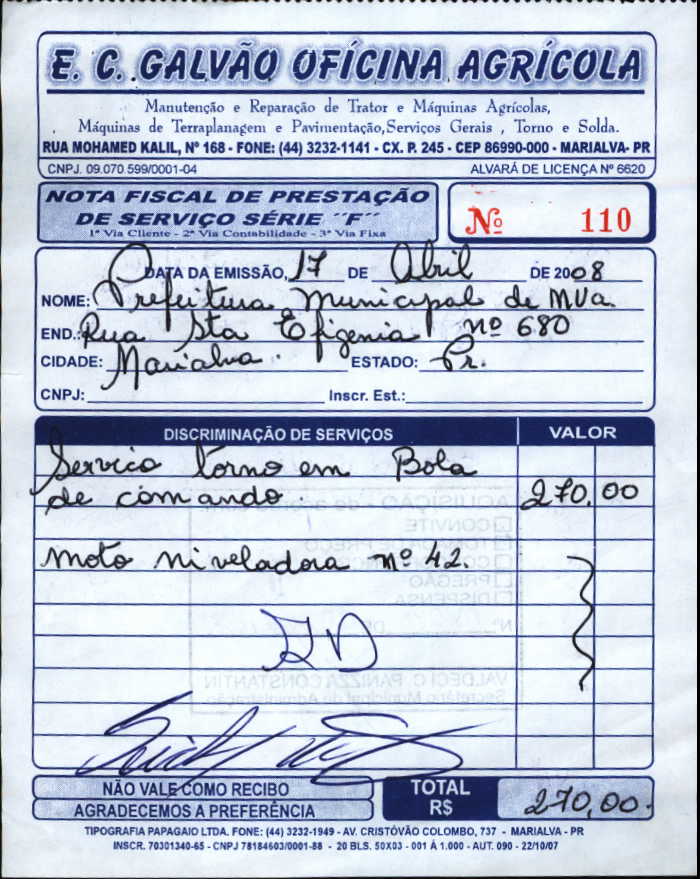 E. C. GALVÃO OFÍCINA AGRÍCOLA
Manutenção e Reparação de Trator e Máquinas Agrícolas,
Máquinas de Terraplanagem e Pavimentação,Serviços Gerais , Torno e Solda.
RUA MOHAMED KALIL, Nº 168 - FONE: (44) 3232-1141 - CX. P. 245 - CEP 86990-000 - MARIALVA- PR
CNPJ. 09.070.599/0001-04 ALVARÁ DE LICENÇA Nº 6620
NOTA FISCAL DE PRESTAÇÃO
DE SERVIÇO SÉRIE ´´F´´
1ª Via Cliente - 2ª Via Contabilidade - 3ª Via Fixa
Nº 110
DATA DA EMISSÃO, 17 DE Abril DE 2008
NOME: Prefeitura Municipal de MVa.
END.: Rua Sta Efigenia nº 680
CIDADE: Marialva. ESTADO: Pr.
CNPJ: Inscr. Est.:
DISCRIMINAÇÃO DE SERVIÇOS VALOR
Servico torno em Bola
de comando. 270,00
moto niveladora nº 42.
AQUISIÇÃO - de acordo com
CONVITE
TOMADA DE PREÇO
PREGÃO
DISPENSA
Nº DE
VALDECI C. PANIZZA CONSTANTIN
Secretário Municipal de Administração
NÃO VALE COMO RECIBO
AGRADECEMOS A PREFERÊNCIA
TOTAL
R$ 270,00.
TIPOGRAFIA PAPAGAIO LTDA. FONE: (44) 3232-1949 - AV. CRISTÓVÃO COLOMBO, 737 - MARIALVA - PR
INSCR. 70301340-65 - CNPJ 78184603/0001-88 - 20 BLS. 50X03 - 001 Á 1.000 - AUT. 090 - 22/10/07